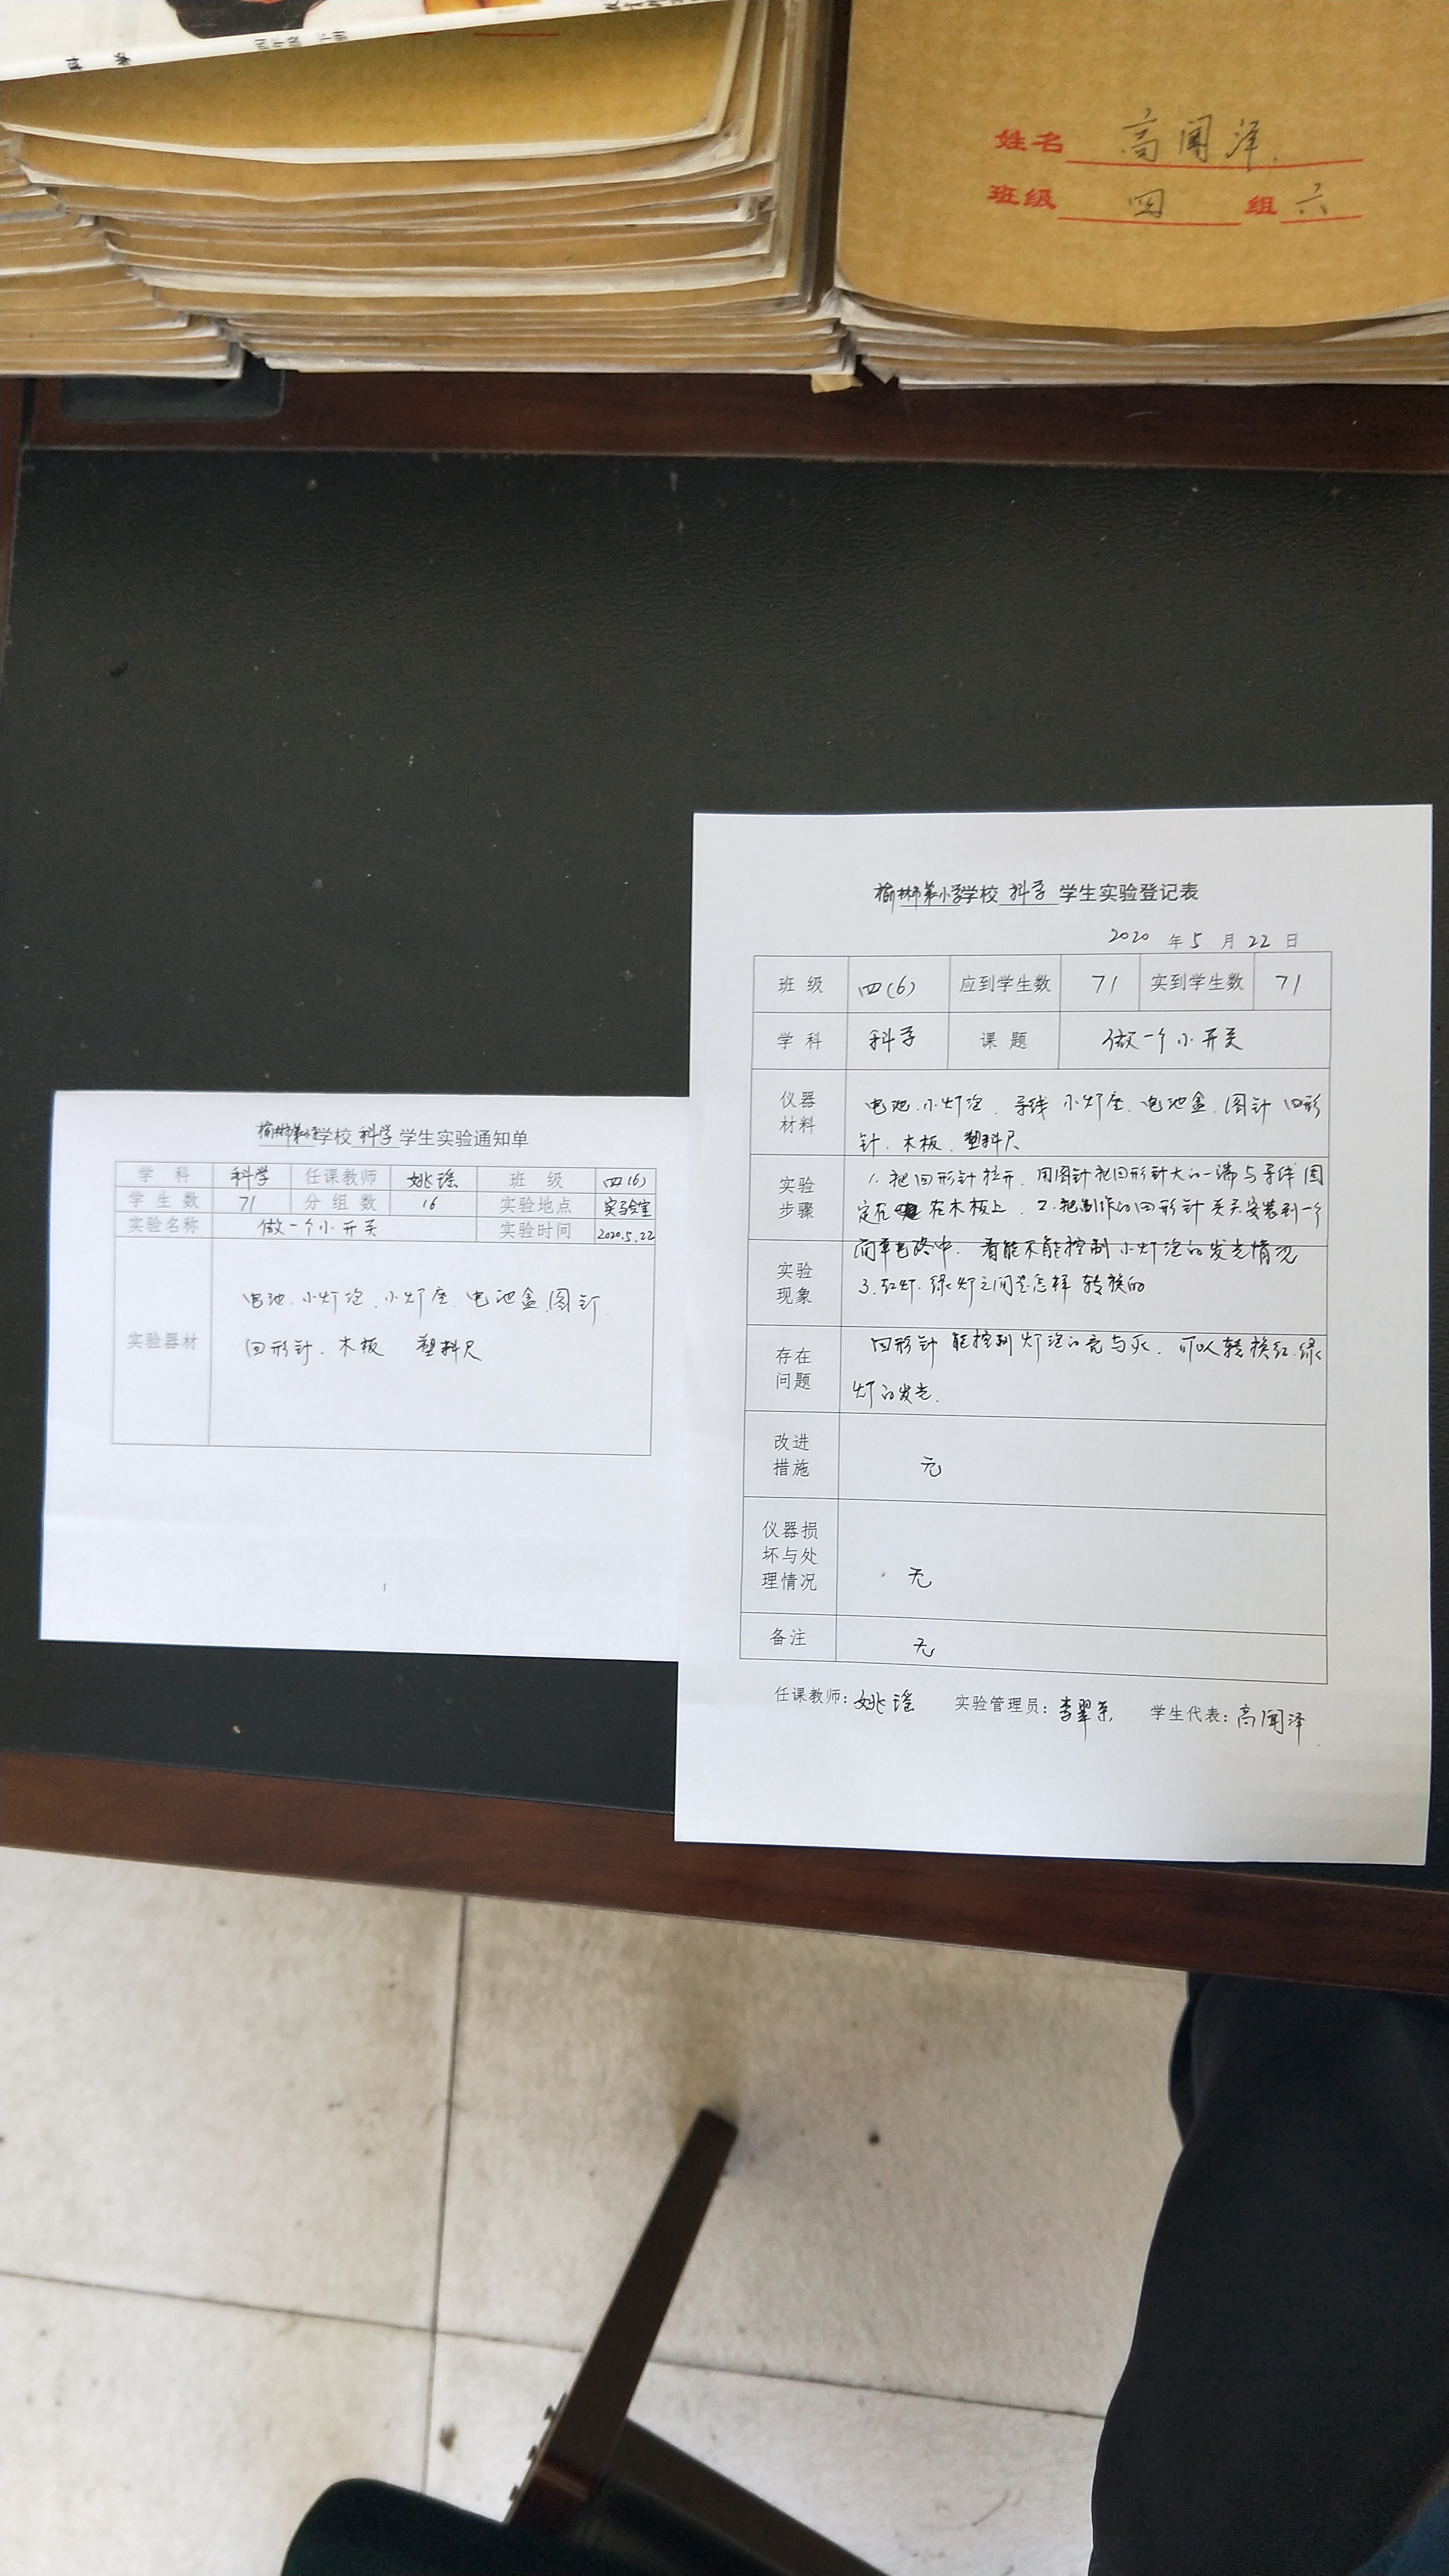 姓名 高闻泽
班级 四 组 六
学校 科学 学生实验通知单
学科 科学 任课教师 姚瑶 班级 四(6)
学生数 71 分组数 16 实验地点 实验室
实验名称 做一个小开关 实验时间 2020.5.22
实验器材
电池、小灯泡、小灯座、电池盒、图钉、
回形针、木板 塑料尺
1
学校 科学 学生实验登记表
2020 年 5 月 22 日
班级 四(6) 应到学生数 71 实到学生数 71
学科 科学 课题 做一个小开关
仪器
材料
电池、小灯泡、导线 小灯座、电池盒、图针 回形
针、木板、塑料尺
实验
步骤
1. 把回形针拉开,用图针把回形针大的一端与导线固
定在 在木板上、2.把制作的回形针关关安装到一个
简单电路中,看能不能控制小灯泡的发光情况
实验
现象
3.红灯、绿灯之间是怎样转换的
存在
问题
回形针能控制灯泡的亮与灭,可以转换红、绿
灯的发光.
改进
措施
无
仪器损
坏与处
理情况
无
备注 无
任课教师:姚瑶 实验管理员: 学生代表:高闻泽